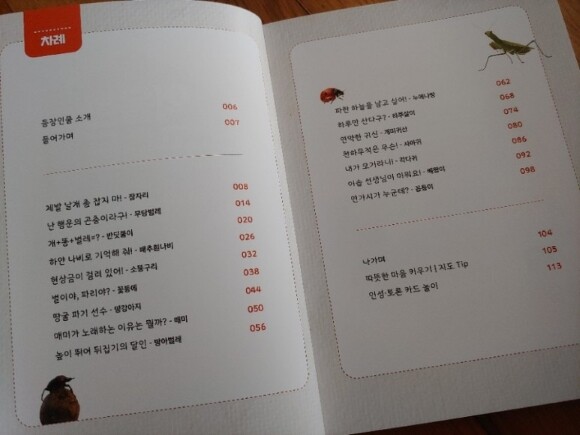 차례
등장인물 소개 006
들어가며 007
제발 날개 좀 잡지 마! - 잠자리 008
난 행운의 곤충이라구! - 무당벌레 014
개+똥+벌레=? - 반딧불이 020
하얀 나비로 기억해 줘! - 배추흰나비 026
현상금이 걸려 있어! - 소똥구리 032
벌이야, 파리야? - 꽃등에 038
땅굴 파기 선수 - 땅강아지 044
매미가 노래하는 이유는 뭘까? - 매미 050
높이 뛰어 뒤집기의 달인 - 방아벌레 056
파란 하늘을 날고 싶어! - 누에나방 062
하루만 산다구? - 하루살이 068
연약한 귀신 - 개미귀신 074
천하무적은 우승! - 사마귀 080
내가 모기라니! - 각다귀 086
아솔 선생님이 미워요! - 베짱이 092
연가시가 누군데? - 곱등이 098
나가며 104
따뜻한 마음 키우기 | 지도 Tip 105
인성·토론 카드 놀이 113